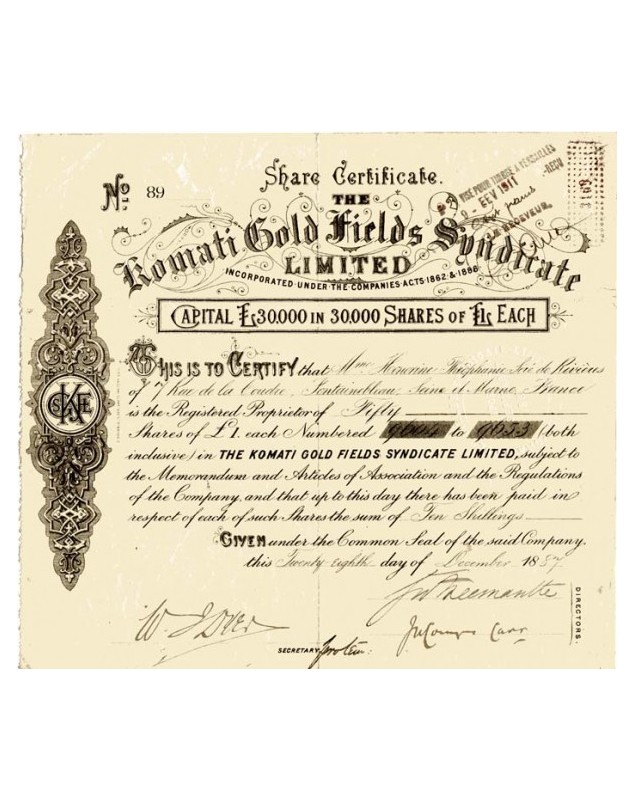 Share Certificate.
No: 89
THE
Komati Gold Fields Syndicate
LIMITED
INCORPORATED UNDER THE COMPANIES ACTS 1862 & 1886
CAPITAL £30.000 IN 30.000 SHARES OF £1 EACH
VISÉ POUR TIMBRE A VERSAILLES
FEV 1911
THIS IS TO CERTIFY that Mme Honorine Théophanie de
of 7 Rue de la Coudre, Fontainebleau, Seine et Marne, France
is the Registered Proprietor of Fifty
Shares of £1. each Numbered 9604 to 9653 (both
inclusive) in THE KOMATI GOLD FIELDS SYNDICATE LIMITED, subject to
the Memorandum and Articles of Association and the Regulations
of the Company, and that up to this day there has been paid in
respect of each of such Shares the sum of Ten Shillings
GIVEN under the Common Seal of the said Company,
this Twenty Eighth day of December 1887
W J Dyer
Carr
DIRECTORS.
SECRETARY, pro tem: